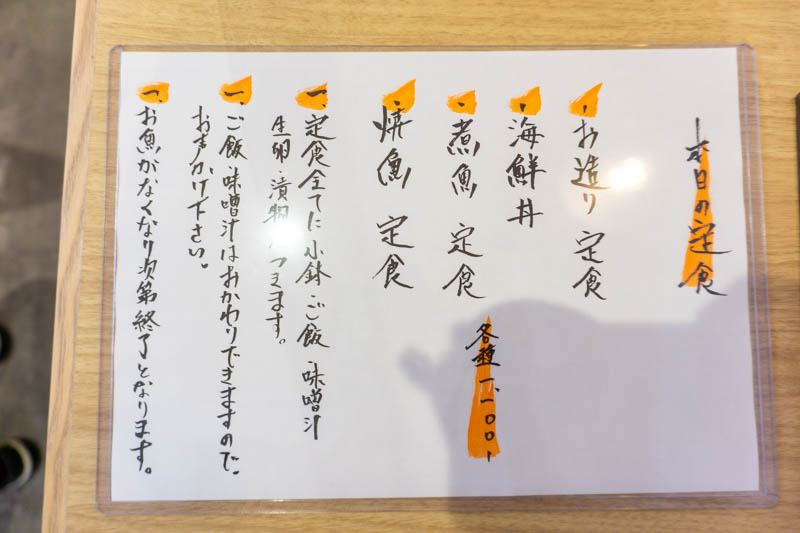 本日の定食
・お造り 定食
・海鮮丼
・煮魚 定食
・焼魚 定食
各種一、一〇〇-
一、定食全てに小鉢 ご飯・味噌汁
生卵・漬物 つきます。
一、ご飯・味噌汁はおかわりできますので、
お声かけ下さい。
一、お魚がなくなり次第終了となります。